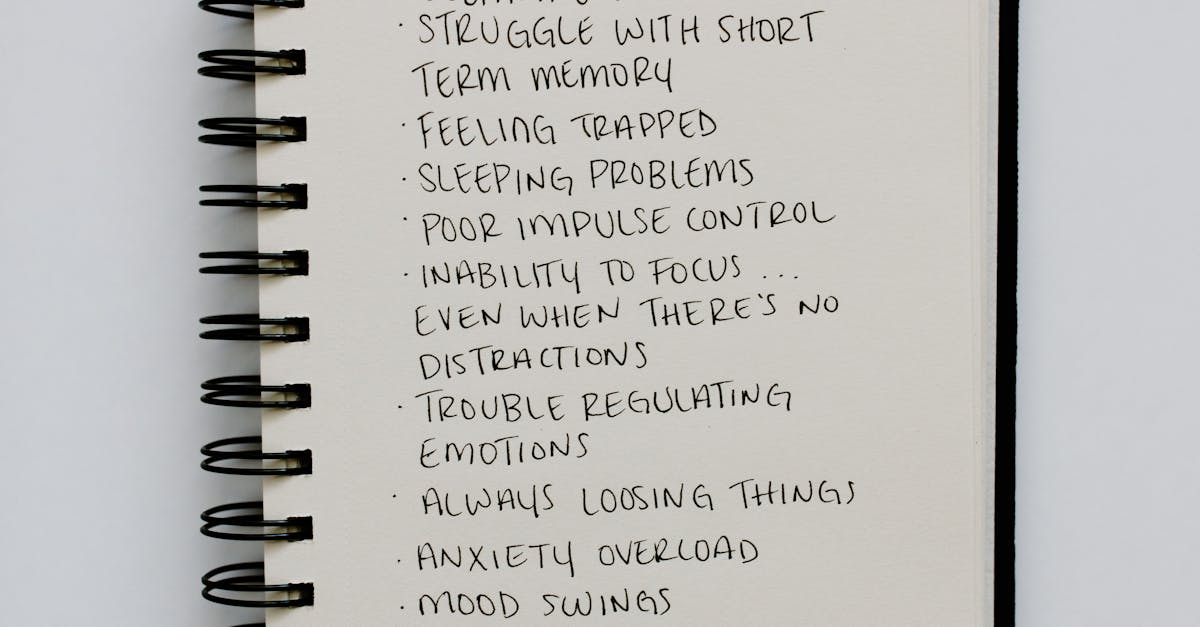 · STRUGGLE WITH SHORT
TERM MEMORY
· FEELING TRAPPED
· SLEEPING PROBLEMS
· POOR IMPULSE CONTROL
· INABILITY TO FOCUS ...
EVEN WHEN THERE'S NO
DISTRACTIONS
· TROUBLE REGULATING
EMOTIONS
· ALWAYS LOOSING THINGS
· ANXIETY OVERLOAD
· MOOD SWINGS